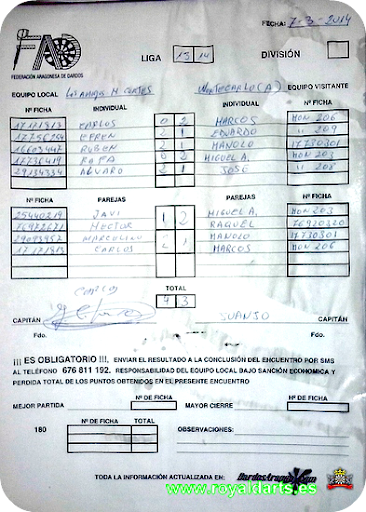 FECHA: 7-3-2014
FAD
FEDERACIÓN ARAGONESA DE DARDOS
LIGA 13 14 DIVISIÓN
EQUIPO LOCAL H CORTES MONTECARLO(A) EQUIPO VISITANTE
Nº FICHA INDIVIDUAL INDIVIDUAL Nº FICHA
CARLOS 0 2 MARCOS MON 206
EFREN 2 1 EDUARDO 209
RUBEN 2 1 MANOLO 17730301
17736419 RAFA 0 2 MIGUEL A. MON 203
29134334 ALVARO 2 1 JOSE 208
Nº FICHA PAREJAS PAREJAS Nº FICHA
25440219 JAVI 1 2 MIGUEL A. MON 203
HECTOR RAQUEL 76920320
MARCELINO 2 1 MANOLO 17730301
CARLOS MARCOS MON 206
TOTAL
4 3
CARLOS
CAPITÁN JUANJO CAPITÁN
Fdo. Fdo.
¡¡¡ ES OBLIGATORIO !!!, ENVIAR EL RESULTADO A LA CONCLUSIÓN DEL ENCUENTRO POR SMS
AL TELÉFONO 676 811 192. RESPONSABILIDAD DEL EQUIPO LOCAL BAJO SANCIÓN ECONOMICA Y
PERDIDA TOTAL DE LOS PUNTOS OBTENIDOS EN EL PRESENTE ENCUENTRO
Nº DE FICHA Nº DE FICHA
MEJOR PARTIDA MAYOR CIERRE
180 Nº DE FICHA TOTAL OBSERVACIONES:
TODA LA INFORMACIÓN ACTUALIZADA EN:
www.royaldarts.es